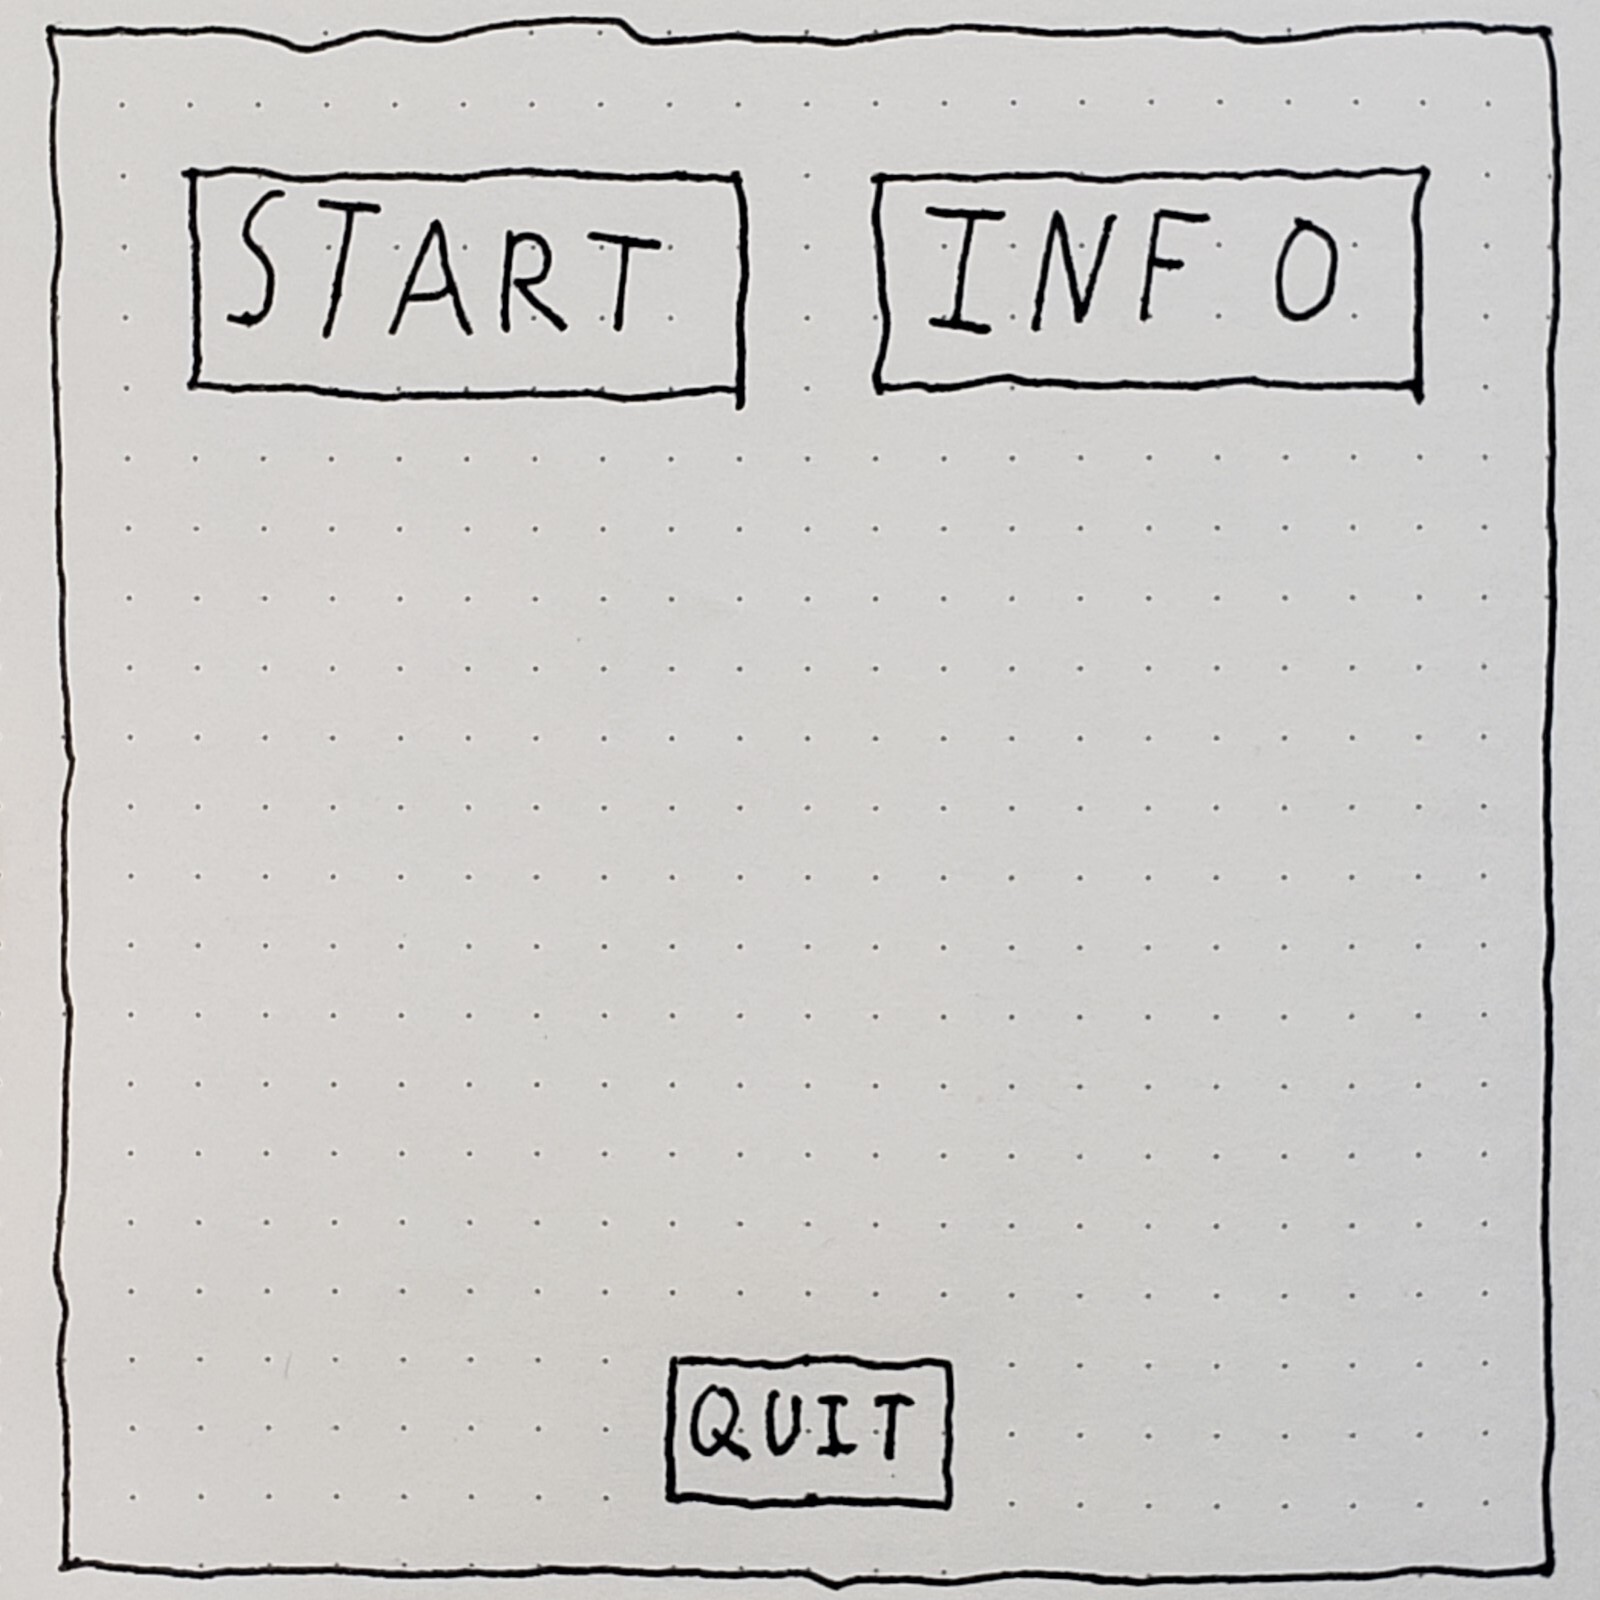 START INFO
QUIT